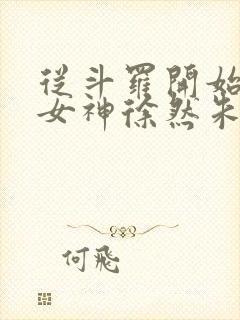 從斗羅開始
女神徐然朱
何飛